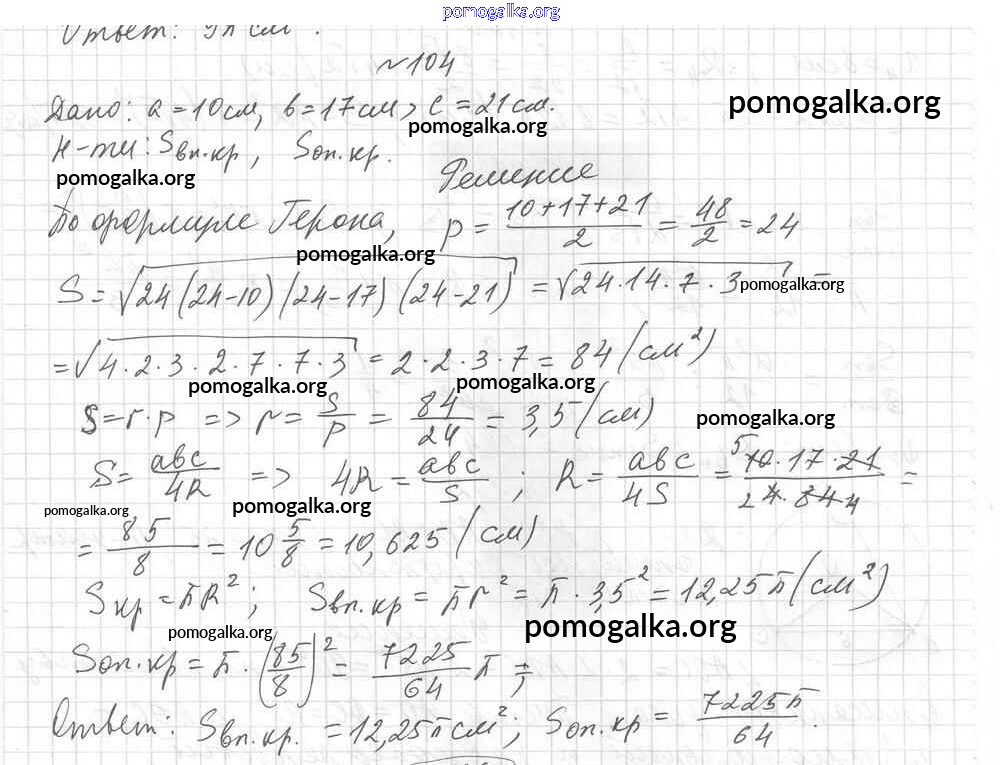 pomogalka.org
Ответ: 9π см .
№104
Дано: a=10см, b=17см, c=21см.
pomogalka.org
pomogalka.org
Н-ти: Sвп.кр, Sоп.кр.
pomogalka.org
Решение
По формуле Герона, p = \frac{10+17+21}{2} = \frac{48}{2} = 24
pomogalka.org
S = √24(24-10)(24-17)(24-21) = √24·14·7·3 =
pomogalka.org
= √4·2·3·2·7·7·3 = 2·2·3·7 = 84 (см²)
pomogalka.org
pomogalka.org
S=r·p => r = \frac{S}{p} = \frac{84}{24} = 3,5 (см)
pomogalka.org
S = \frac{abc}{4R} => 4R = \frac{abc}{S} ; R = \frac{abc}{4S} = \frac{10·17·21}{4·84} =
pomogalka.org
pomogalka.org
= \frac{85}{8} = 10\frac{5}{8} = 10,625 (см)
Sкр = πR²; Sвп.кр = πr² = π·3,5² = 12,25π (см²)
pomogalka.org
pomogalka.org
Sоп.кр = π·(\frac{85}{8})² = \frac{7225}{64}π ;
Ответ: Sвп.кр. = 12,25π см²; Sоп.кр = \frac{7225π}{64}.